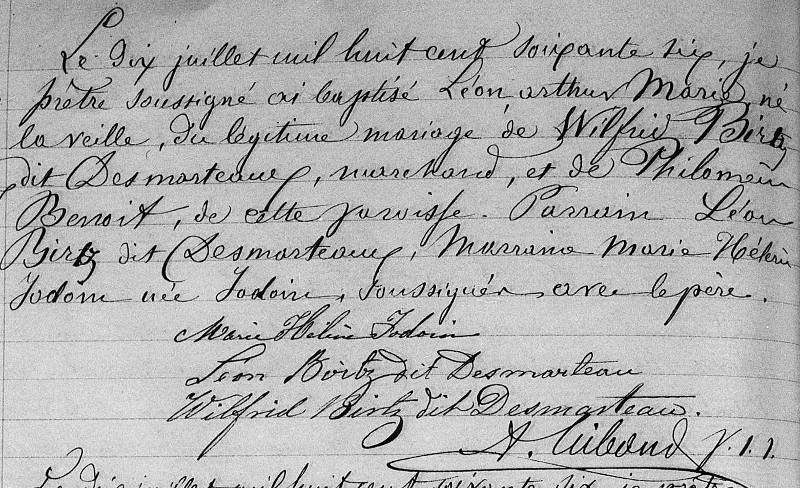 Le dix juillet mil huit cent soixante six, je
prêtre soussigné ai baptisé Léon arthur Marie, né
la veille, du légitime mariage de Wilfrid Birtz
dit Desmarteaux, marchand, et de Philomène
Benoit, de cette paroisse. Parrain Léon
Birtz dit Desmarteaux, Marraine Marie Hélène
Jodoin née Jodoin, soussignés avec le père.
Marie Hélène Jodoin
Léon Birtz dit Desmarteau
Wilfrid Birtz dit Desmarteau.
A.
Le dix juillet mil huit cent soixante six je prêtre